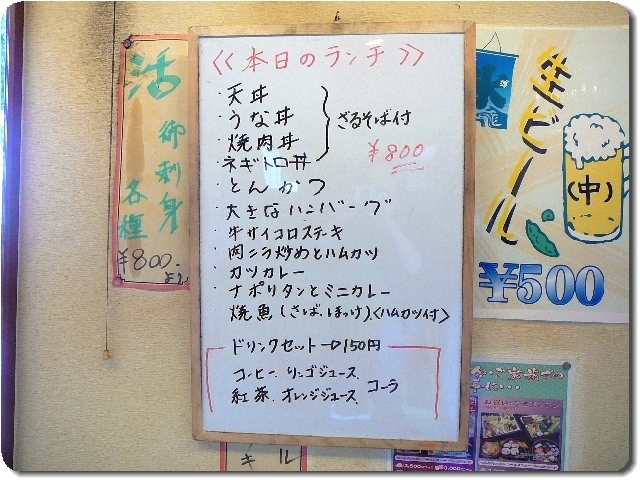 ≪本日のランチ≫
・天丼
・うな丼
・焼肉丼
・ネギトロ丼
ざるそば付
¥800
・とんかつ
・大きなハンバーグ
・牛サイコロステーキ
・肉ニラ炒めとハムカツ
・カツカレー
・ナポリタンとミニカレー
・焼魚(さば、ほっけ)<ハムカツ付>
ドリンクセット→150円
コーヒー、リンゴジュース、
紅茶、オレンジジュース、コーラ
活
御刺身
各種
¥800-
より
生ビール
(中)
¥500